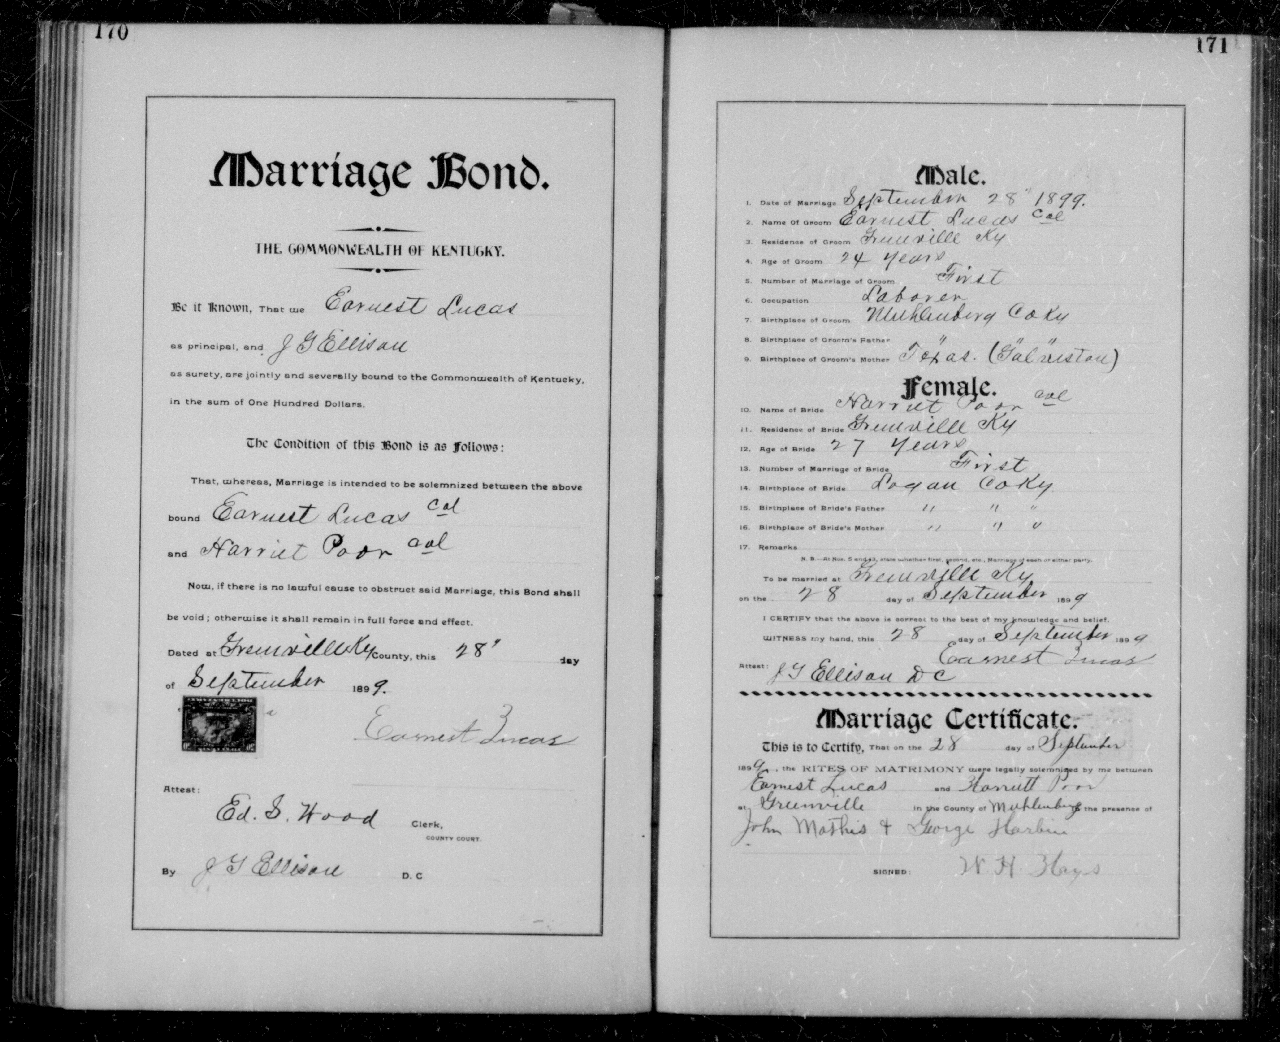 170
Marriage Bond.
THE COMMONWEALTH OF KENTUCKY.
Be it Known, That we Earnest Lucas
as principal, and J G Ellison
as surety, are jointly and severally bound to the Commonwealth of Kentucky,
in the sum of One Hundred Dollars.
The Condition of this Bond is as Follows:
That, whereas, Marriage is intended to be solemnized between the above
bound Earnest Lucas Col
and Harriet Poor Col
Now, if there is no lawful cause to obstruct said Marriage, this Bond shall
be void; otherwise it shall remain in full force and effect.
Dated at Greenville Ky County, this 28" day
of September 1899.
Earnest Lucas
Attest:
Ed. S. Wood Clerk,
COUNTY COURT.
By J G Ellison D. C
171
Male.
1. Date of Marriage September 28" 1899.
2. Name Of Groom Earnest Lucas Col
3. Residence of Groom Greenville Ky
4. Age of Groom 24 years
5. Number of Marriage of Groom First
6. Occupation Laborer
7. Birthplace of Groom Muhlenberg Co Ky
8. Birthplace of Groom's Father " " "
9. Birthplace of Groom's Mother Texas. (Galveiston)
Female.
10. Name of Bride Harriet Poor Col
11. Residence of Bride Greenville Ky
12. Age of Bride 27 years
13. Number of Marriage of Bride First
14. Birthplace of Bride Logan Co Ky
15. Birthplace of Bride's Father " " "
16. Birthplace of Bride's Mother " " "
17. Remarks
N. B.—At Nos. 5 and 13, state whether first, second, etc., Marriage of each or either party.
To be married at Greenville Ky
on the 28 day of September 1899
I CERTIFY that the above is correct to the best of my knowledge and belief.
WITNESS my hand, this 28 day of September 1899
Earnest Lucas
Attest: J G Ellison D C
Marriage Certificate.
This is to Certify, That on the 28 day of September
1899, the RITES OF MATRIMONY were legally solemnized by me between
Earnest Lucas and Harriett Poor
at Greenville in the County of Muhlenberg the presence of
John Mathis & George Harbin
SIGNED: W H Hays